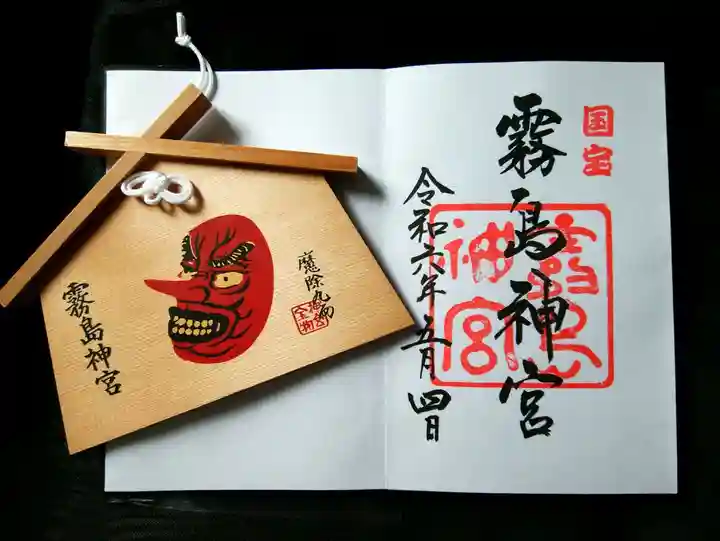 国宝
霧島神宮
令和六年五月四日
霧島
神宮
魔除九面
霧島神宮